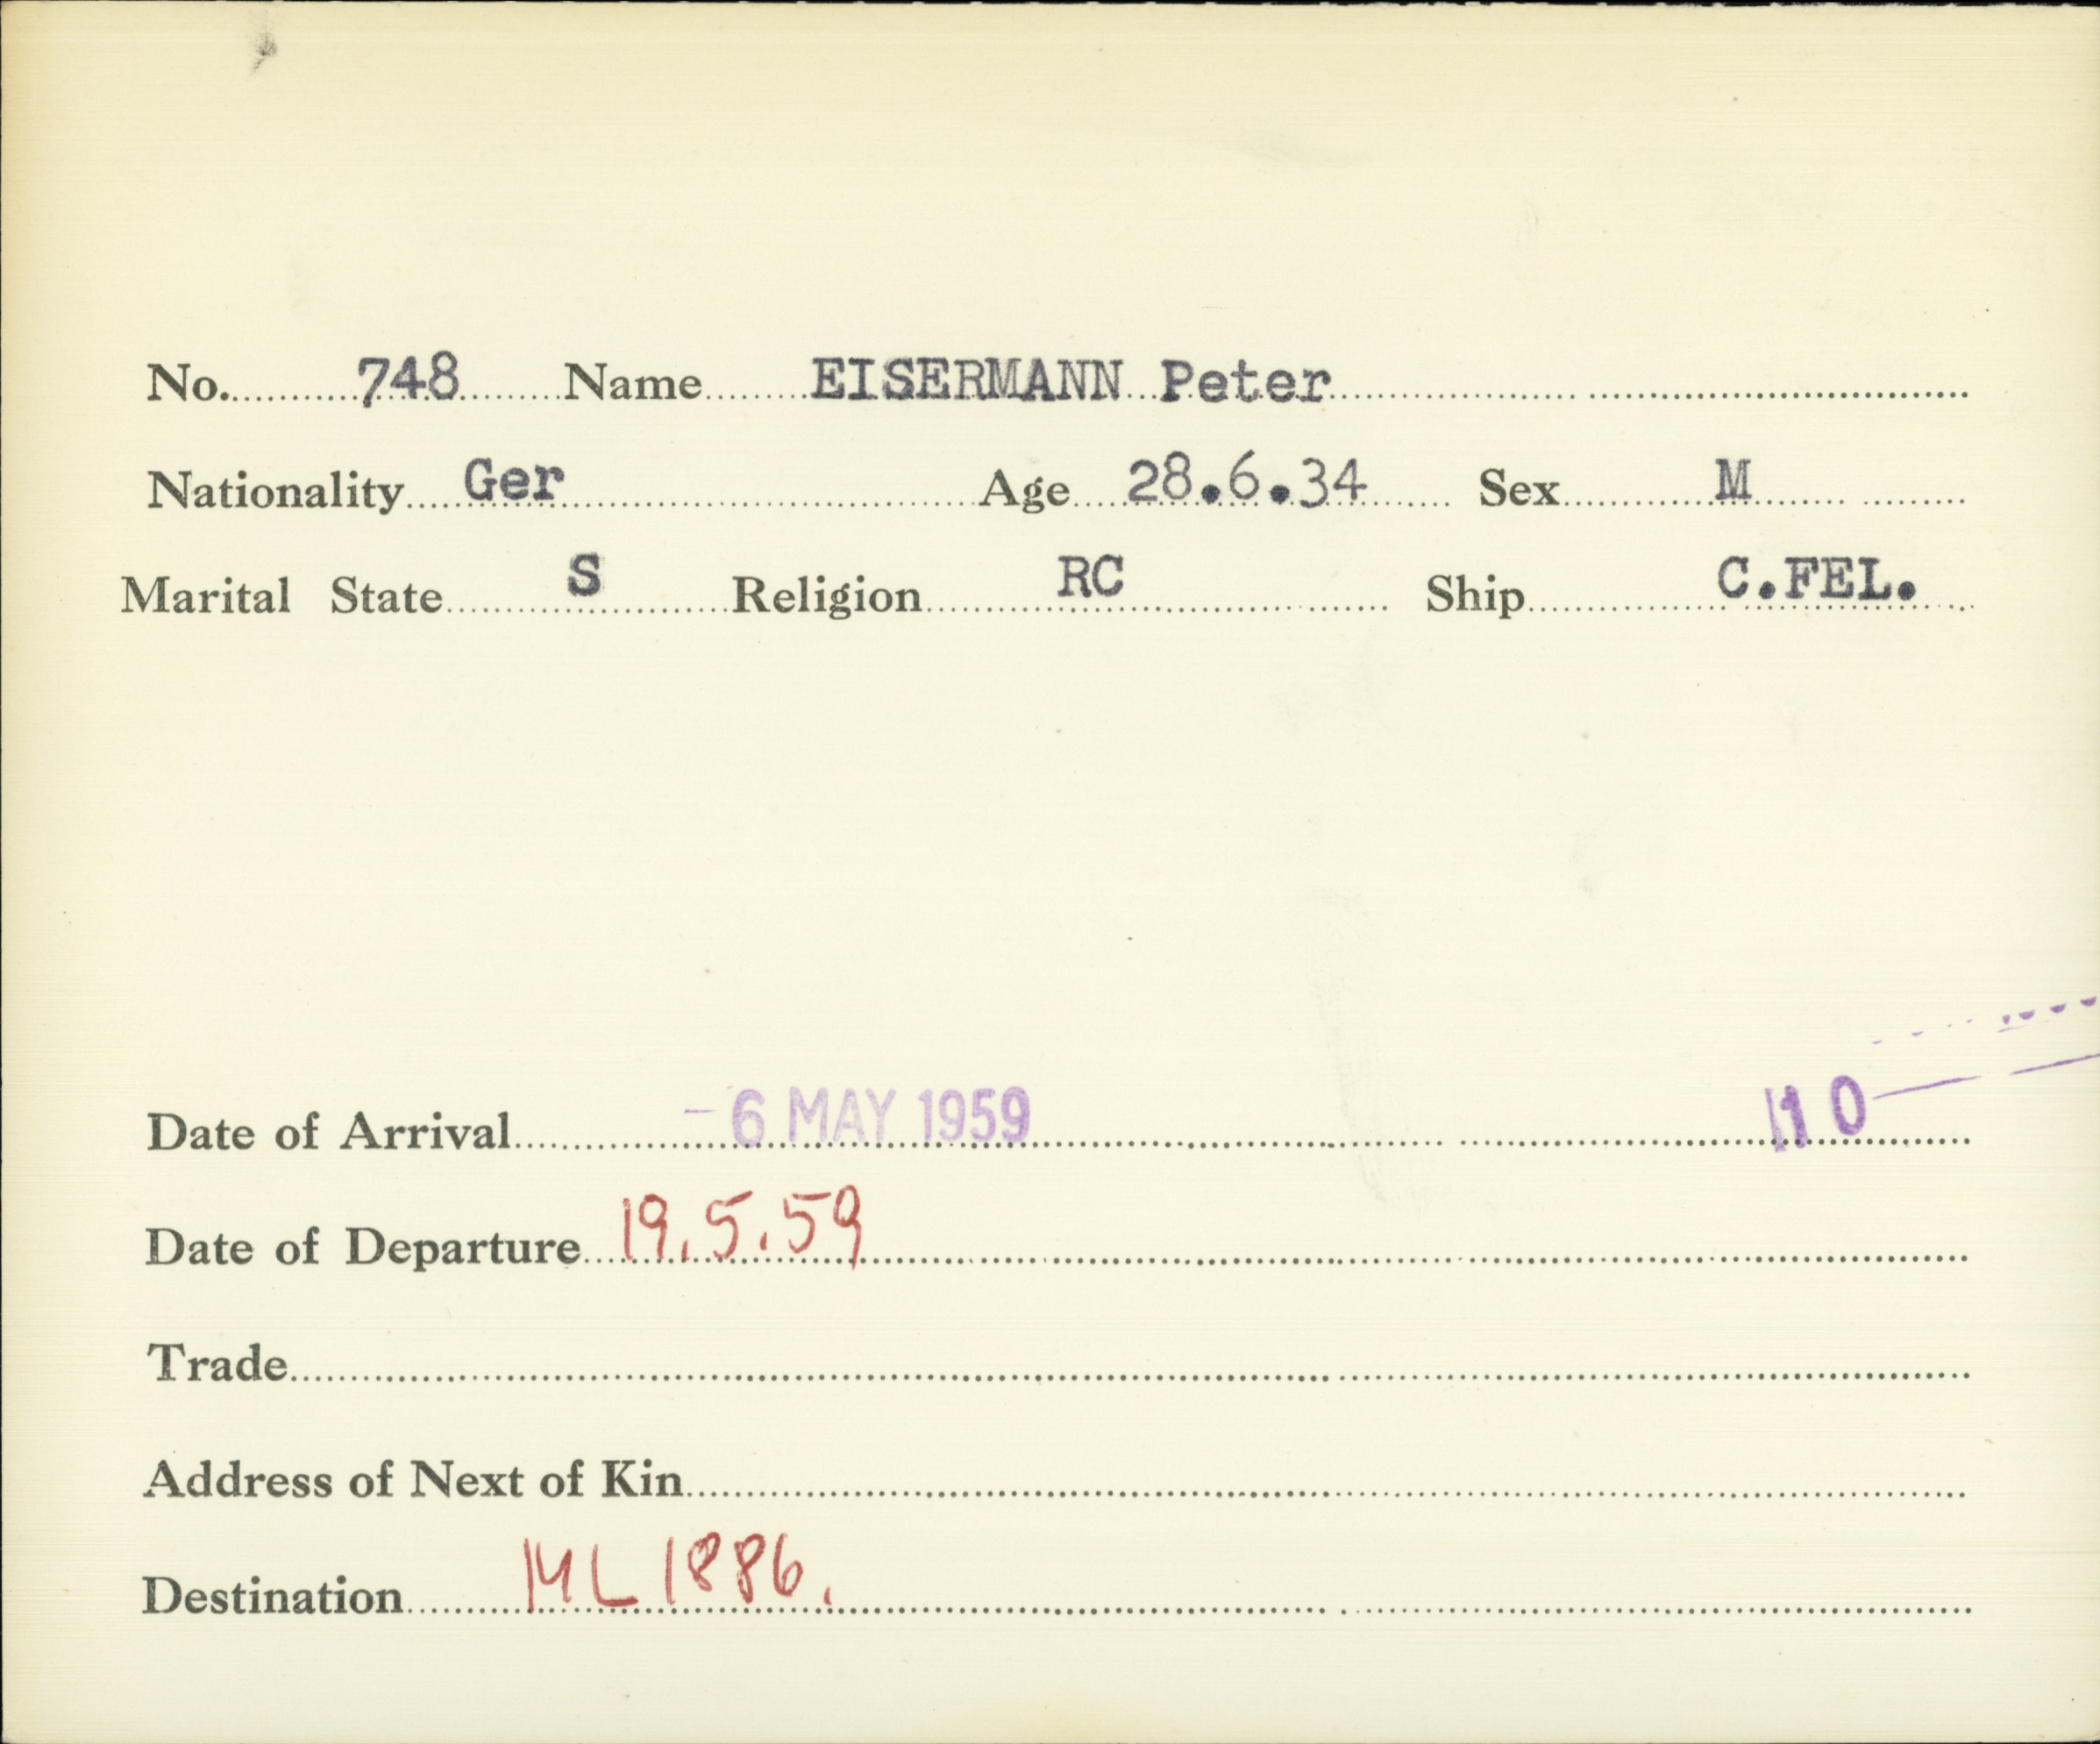 No. 748 Name EISERMANN Peter
Nationality Ger Age 28.6.34 Sex M
Marital State S Religion RC Ship C.FEL.
Date of Arrival -6 MAY 1959 10
Date of Departure 19.5.59
Trade
Address of Next of Kin
Destination ML 1886.